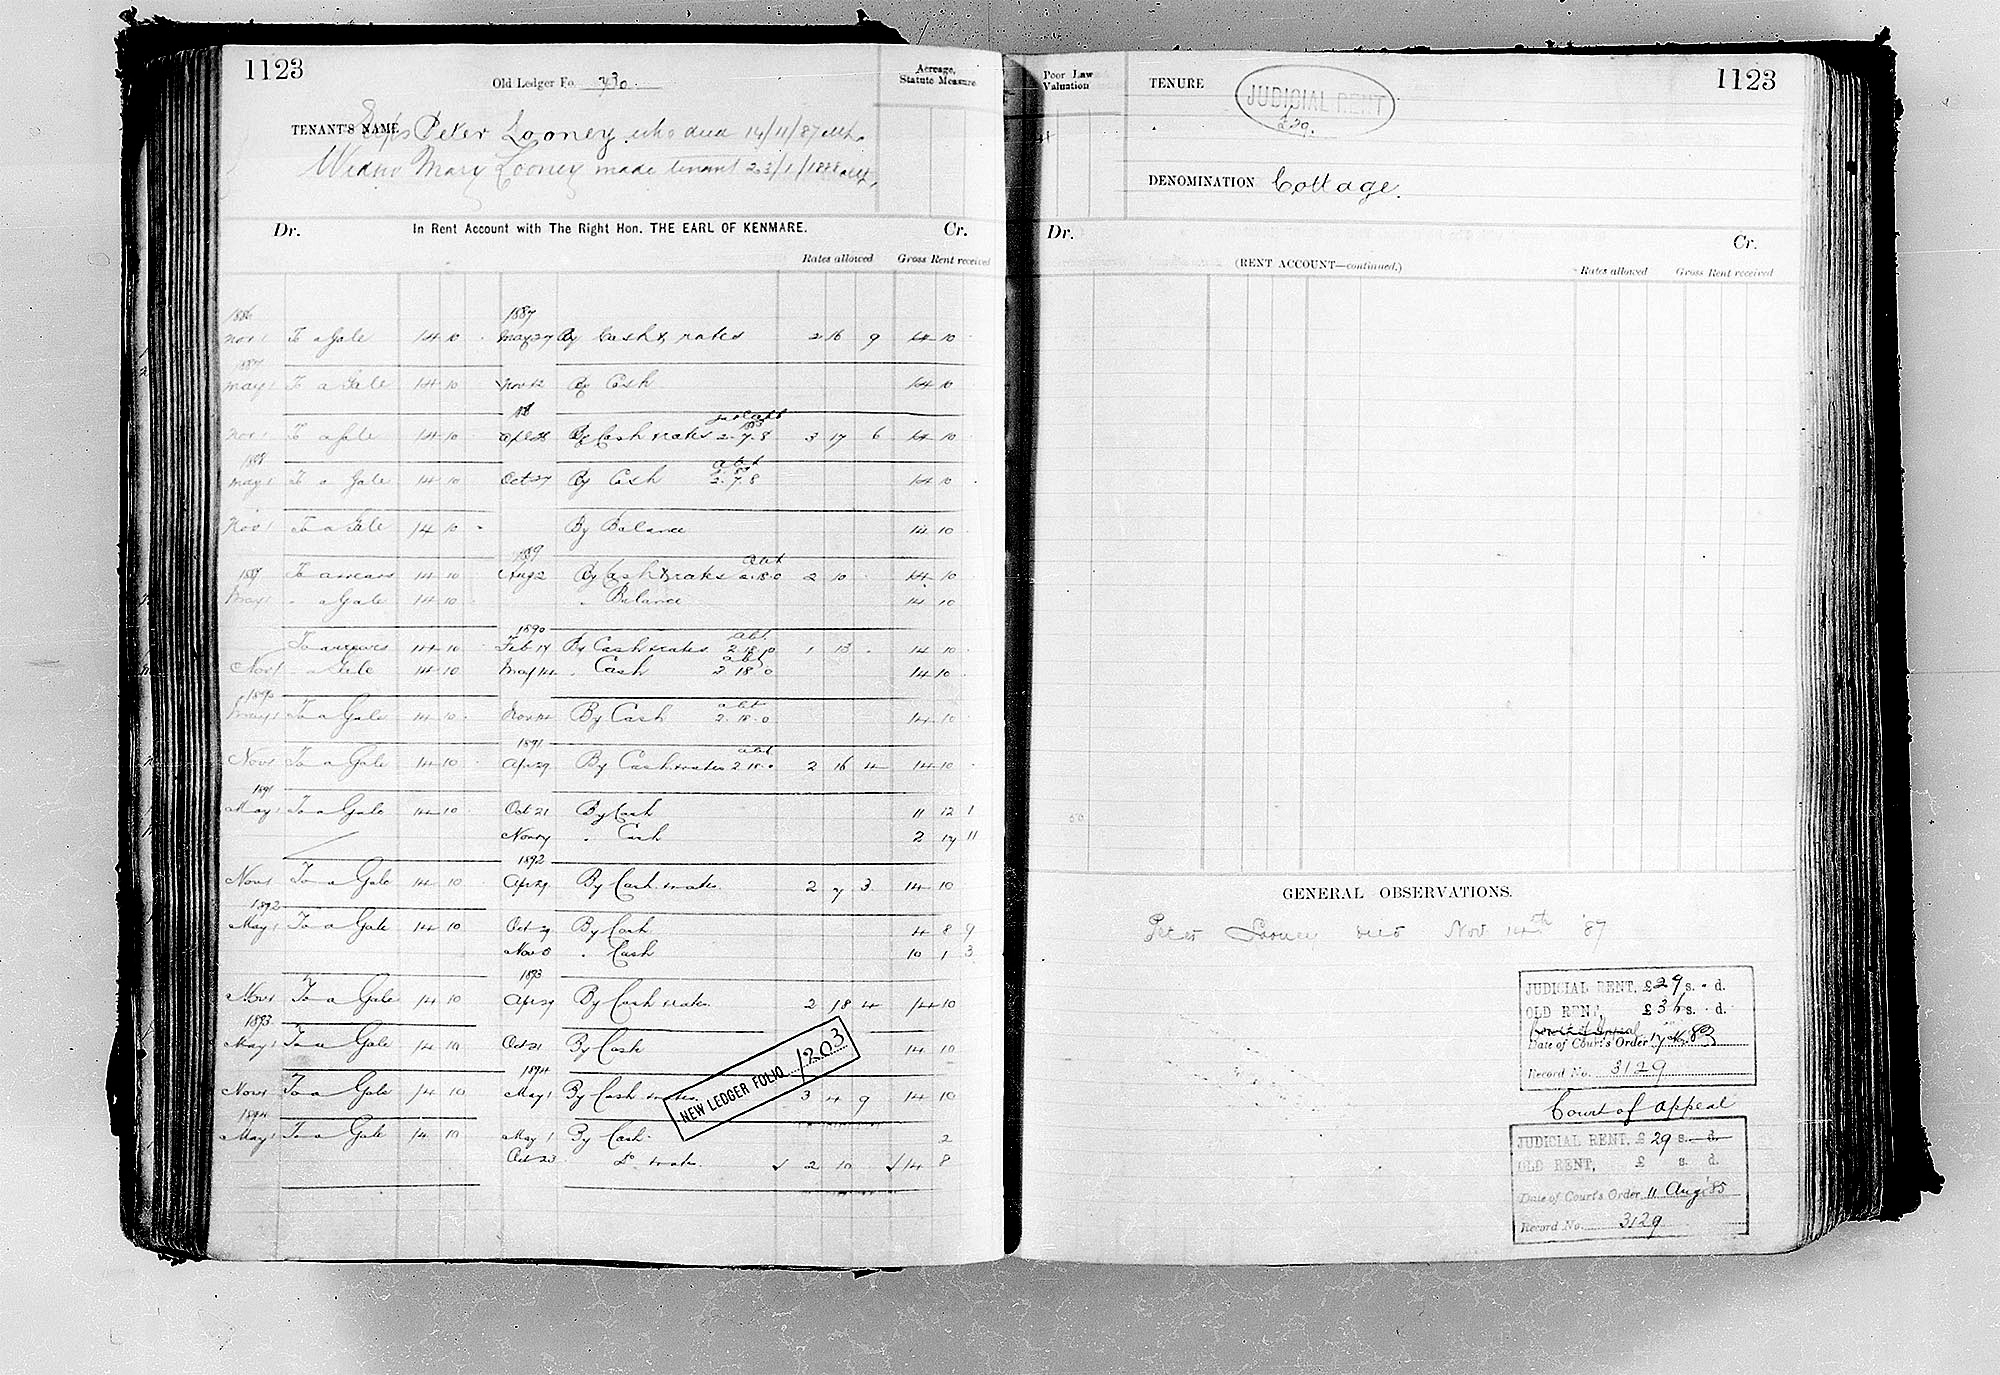 1123
Old Ledger Fo. 730.
Acreage,
Statute Measure
TENANT'S NAME Exps Peter Looney who died 14/11/87
Widow Mary Looney made tenant 23/1/1888
Dr. In Rent Account with The Right Hon. THE EARL OF KENMARE. Cr.
Rates allowed Gross Rent received
1886 1887
Nov 1 To a Gale 14 10 May 27 By Cash & rates 2 16 9 14 10
1887
May 1 To a Gale 14 10 Nov 12 By Cash 14 10
Nov 1 To a Gale 14 10 By Cash & rates 2.7.8 3 17 6 14 10
1888 abt
May 1 To a Gale 14 10 Oct 27 By Cash 2.7.8 14 10
Nov 1 To a Gale 14 10 By Balance 14 10
1889 abt
To arrears 14 10 Aug 2 By Cash & rates 2.18.0 2 10 14 10
May 1 " a Gale 14 10 " Balance 14 10
1890 abt
To arrears 14 10 Feb 14 By Cash & rates 2.18.0 1 13 14 10
Nov 1 " a Gale 14 10 May 14 " Cash 2 18 0 14 10
1890 abt
May 1 To a Gale 14 10 By Cash 2.18.0 14 10
1891 abt
Nov 1 To a Gale 14 10 Apr 29 By Cash & rates 2 18.0 2 16 4 14 10
1891
May 1 To a Gale 14 10 Oct 21 By Cash 11 12 1
" Cash 2 17 11
1892
Nov 1 To a Gale 14 10 Apr 29 By Cash & rates 2 7 3 14 10
1892
May 1 To a Gale 14 10 Oct 29 By Cash 4 8 9
Nov 8 " Cash 10 1 3
1893
Nov 1 To a Gale 14 10 Apr 29 By Cash & rates 2 18 4 14 10
1893
May 1 To a Gale 14 10 Oct 21 By Cash 14 10
1894
Nov 1 To a Gale 14 10 May 1 By Cash & rates 3 4 9 14 10
1894
May 1 To a Gale 14 10 May 1 By Cash 2
Oct 23 Do & rates 2 10 14 8
NEW LEDGER FOLIO 1203
Poor Law
Valuation
TENURE
JUDICIAL RENT
£29.
1123
DENOMINATION Cottage.
Dr. Cr.
(RENT ACCOUNT—continued.) Rates allowed Gross Rent received
GENERAL OBSERVATIONS.
Peter Looney died Nov 14th '87
JUDICIAL RENT, £29 s. - d.
OLD RENT, £36 s. - d.
Court of Appeal
Date of Court's Order 17
Record No. 3129
Court of Appeal
JUDICIAL RENT, £29 s. d.
OLD RENT, £ s. d.
Date of Court's Order 11 Aug '85
Record No. 3129